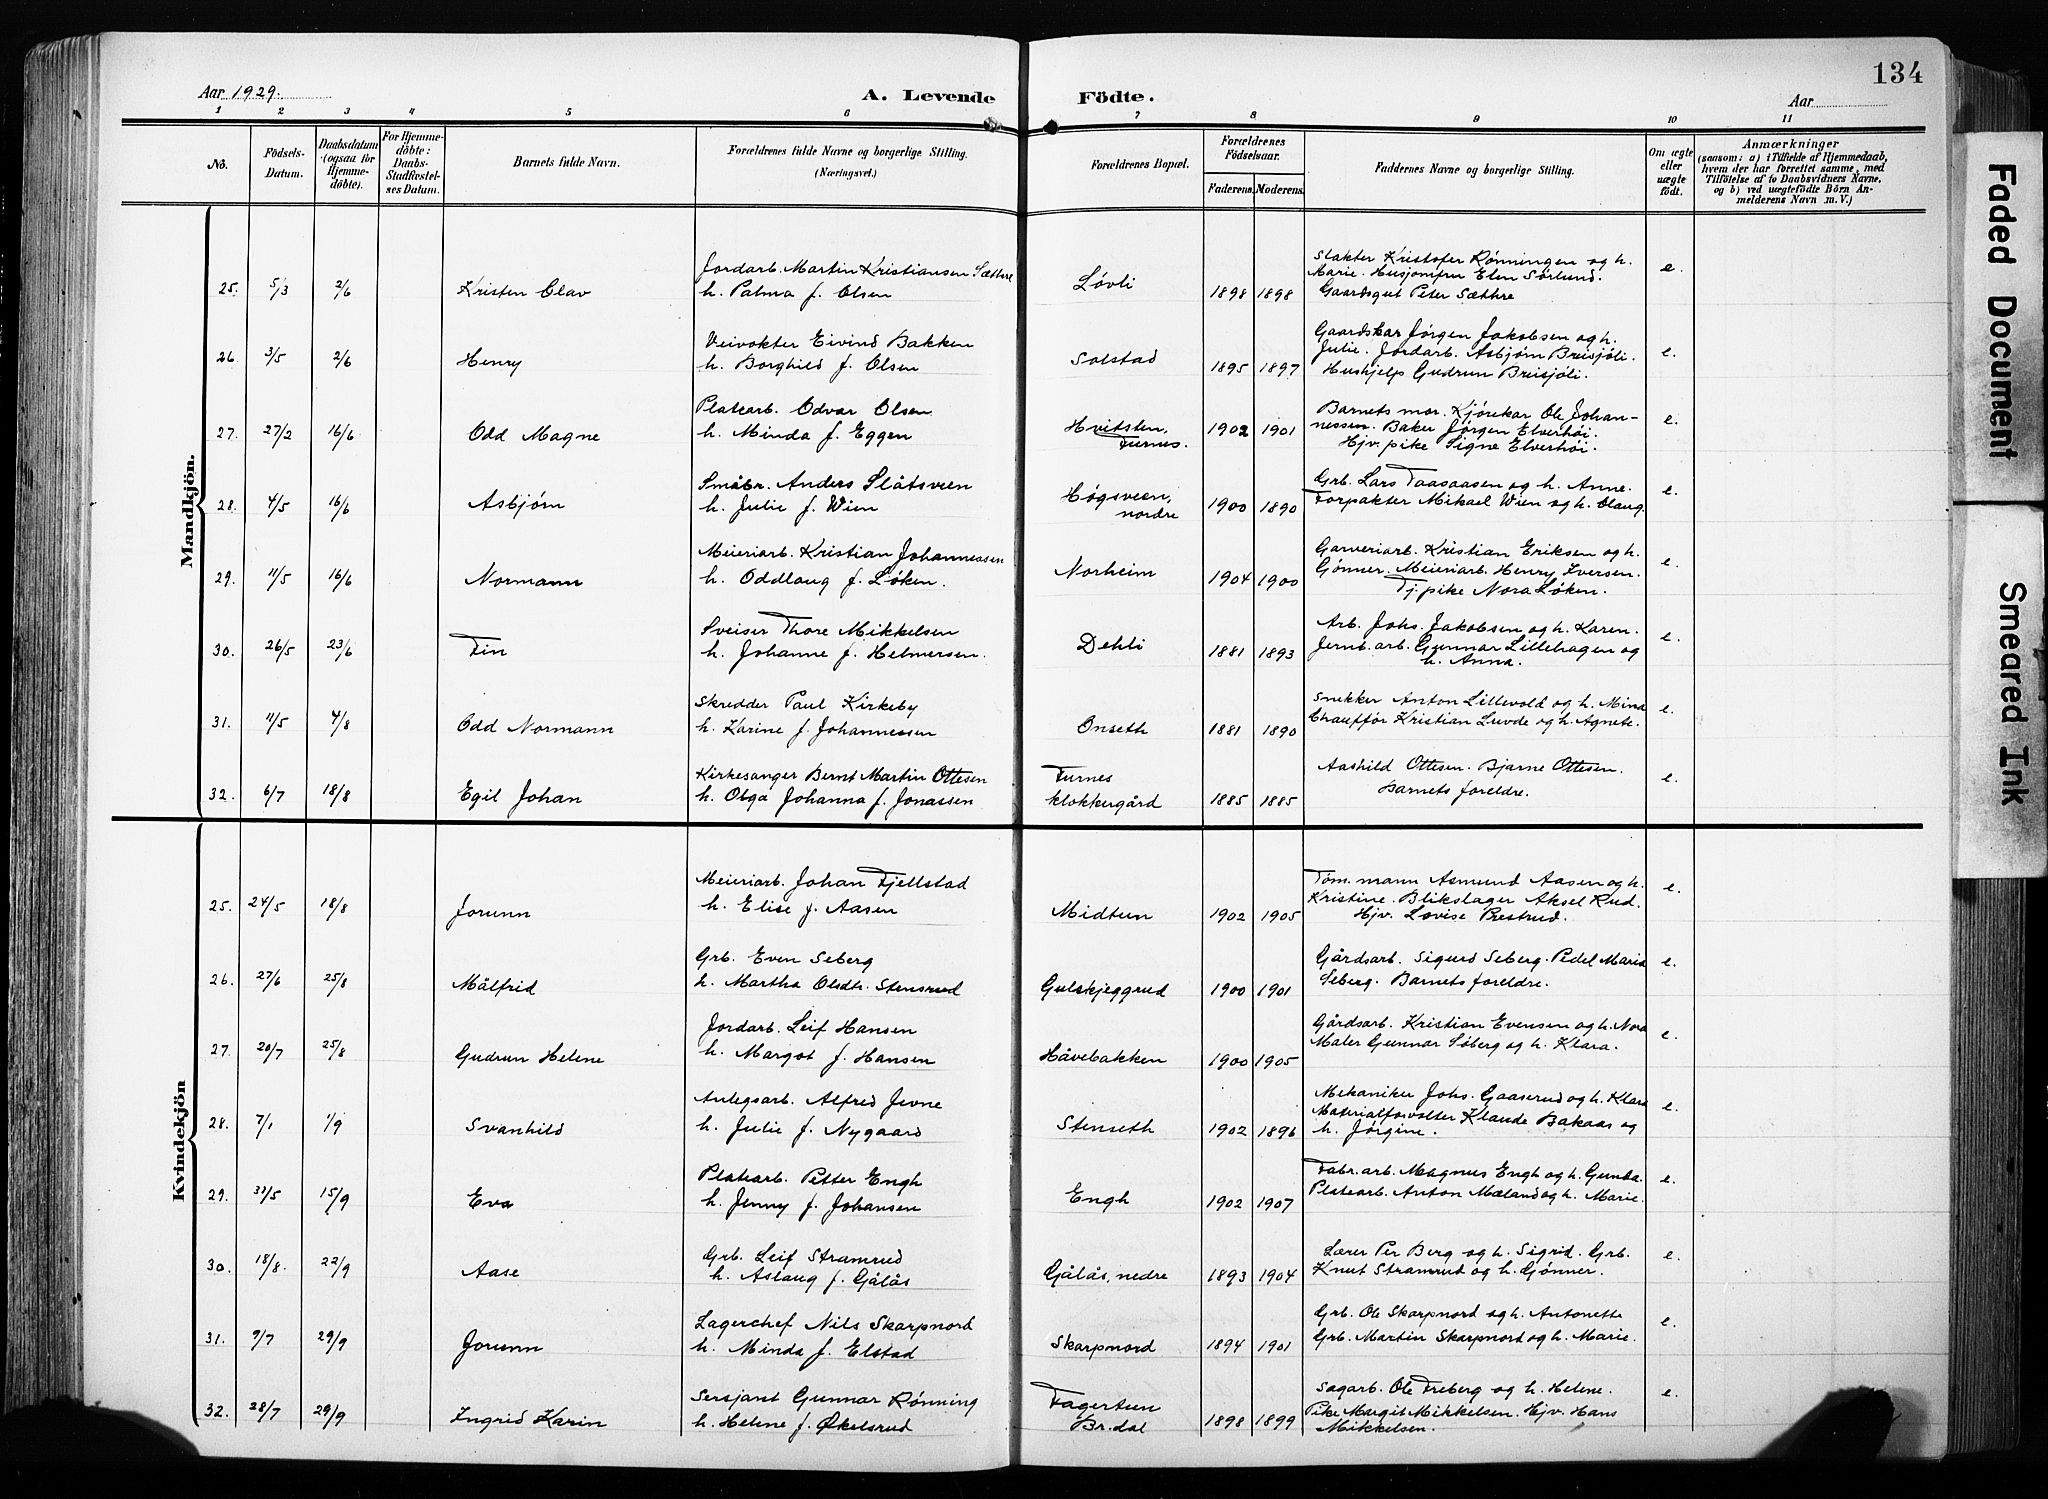 134
Aar 1929.
A. Levende Födte.
Aar
1 2 3 4 5 6 7 8 9 10 11
No.
Födsels-Datum.
Daabsdatum (ogsaa for Hjemmedöbte).
For Hjemmedöbte: Daabs-Stadfæstelses Datum.
Barnets fulde Navn.
Forældrenes fulde Navne og borgerlige Stilling.
(Næringsvei.)
Forældrenes Bopæl.
Forældrenes Födselsaar.
Faderens. Moderens.
Faddernes Navne og borgerlige Stilling.
Om ægte eller uægte födt.
Anmærkninger
(saasom: a) i Tilfælde af Hjemmedaab,
hvem der har forrettet samme, med
Tilföielse af to Daabsvidners Navne,
og b) ved uægtefödte Börn An-
melderens Navn m. V.)
Mandkjön.
Jordarb. Martin Kristiansen Sæthre
Slakter Kristofer Rønningen og h.
Marie. Husjomfru Elen Sörlund.
25. 5/3 2/6 Kristen Olav
h. Palma f. Olsen
Løvli 1898 1898
Gaardsgut Peter Sæthre
e.
Veivokter Eivind Bakken
Gaardskar Jørgen Jakobsen og h.
26. 3/5 2/6 Henry
h. Borghild f. Olsen
Solstad 1895 1897
Julie. Jordarb. Asbjørn Breisjöli.
Hushjelp Gudrun Breisjöli.
e.
Platearb. Odvar Olsen
Barnets mor. Kjörekar Ole Johan-
27. 27/2 16/6 Odd Magne
h. Minda f. Eggen
Hvitsten, Furnes. 1902 1901
nessen. Baker Jørgen Elverhöi.
Hjv. pike Signe Elverhöi.
e.
Småbr. Anders Slåtsveen
Grb. Lars Taasaasen og h. Anne.
28. 4/5 16/6 Asbjørn
h. Julie f. Wien
Høgsveen, nordre 1900 1890
Forpakter Mikael Wien og h. Olaug.
e.
Meieriarb. Kristian Johannessen
Garveriarb. Kristian Eriksen og h.
29. 11/5 16/6 Normann
h. Oddlaug f. Løken.
Norheim 1904 1900
Gønner. Meieriarb. Henry Iversen.
Tj. pike Nora Løken.
e.
Sveiser Thore Mikkelsen
Arb. Johs. Jakobsen og h. Karen.
30. 26/5 23/6 Fin
h. Johanne f. Helmersen.
Dehli 1881 1893
Jernb. arb. Gunnar Lillehagen og
h. Anna.
e.
Skredder Paul Kirkeby
Snekker Anton Lillevold og h. Mina
31. 11/5 4/8 Odd Normann
h. Karine f. Johannessen
Onseth 1881 1890
Chauffør Kristian Luvde og h. Agnete.
e.
Kirkesanger Bernt Martin Ottesen
Aashild Ottesen. Bjarne Ottesen.
32. 6/7 18/8 Egil Johan
h. Olga Johanna f. Jonassen
Furnes klokkergård 1885 1885
Barnets foreldre.
e.
Kvindekjön
Meieriarb. Johan Fjellstad
Töm. mann Asmund Aasen og h.
25. 24/5 18/8 Jorunn
h. Elise f. Aasen
Midtun 1902 1905
Kristine. Blikslager Aksel Rud.
Hjv. Lovise Prestrud.
e.
Grb. Even Seberg
Gårdsarb. Sigurd Seberg. Pedel Maria
26. 27/6 25/8 Målfrid
h. Martha Olsdtr. Stensrud
Gulskjeggrud 1900 1901
Seberg. Barnets foreldre.
e.
Jordarb. Leif Hansen
Gårdsarb. Kristian Evensen og h. Nora
27. 20/7 25/8 Gudrun Helene
h. Margot f. Hansen
Håvebakken 1900 1905
Maler Gunnar Søberg og h. Klara.
e.
Anlegsarb. Alfred Jevne
Mekaniker Johs. Gaaserud og h. Klara
28. 7/1 1/9 Svanhild
h. Julie f. Nygaard
Stenseth 1902 1896
Materialforvalter Klaude Bakaas og
h. Jørgine.
e.
Platearb. Petter Engh
Fabr. arb. Magnus Engh og h. Gunda.
29. 31/5 15/9 Eva
h. Jenny f. Johansen
Engh 1902 1907
Platearb. Anton Mæland og h. Marie.
e.
Grb. Leif Stramrud
Lærer Per Berg og h. Sigrid. Grb.
30. 18/8. 22/9 Aase
h. Aslaug f. Gålås
Gålås, nedre 1893 1904
Knut Stramrud og h. Gønner.
e.
Lagerchef Nils Skarpnord
Grb. Ole Skarpnord og h. Antonette
31. 9/7 29/9 Jorunn
h. Minda f. Elstad
Skarpnord 1894 1901
Grb. Martin Skarpnord og h. Marie.
e.
Sersjant Gunnar Rönning
Sagarb. Ole Freberg og h. Helene.
32. 28/7 29/9 Ingrid Karin
h. Helene f. Økelsrud
Fagertun Br.dal 1898 1899
Pike Margit Mikkelsen. Hjv. Hans
Mikkelsen.
e.
Faded Document
Smeared Ink